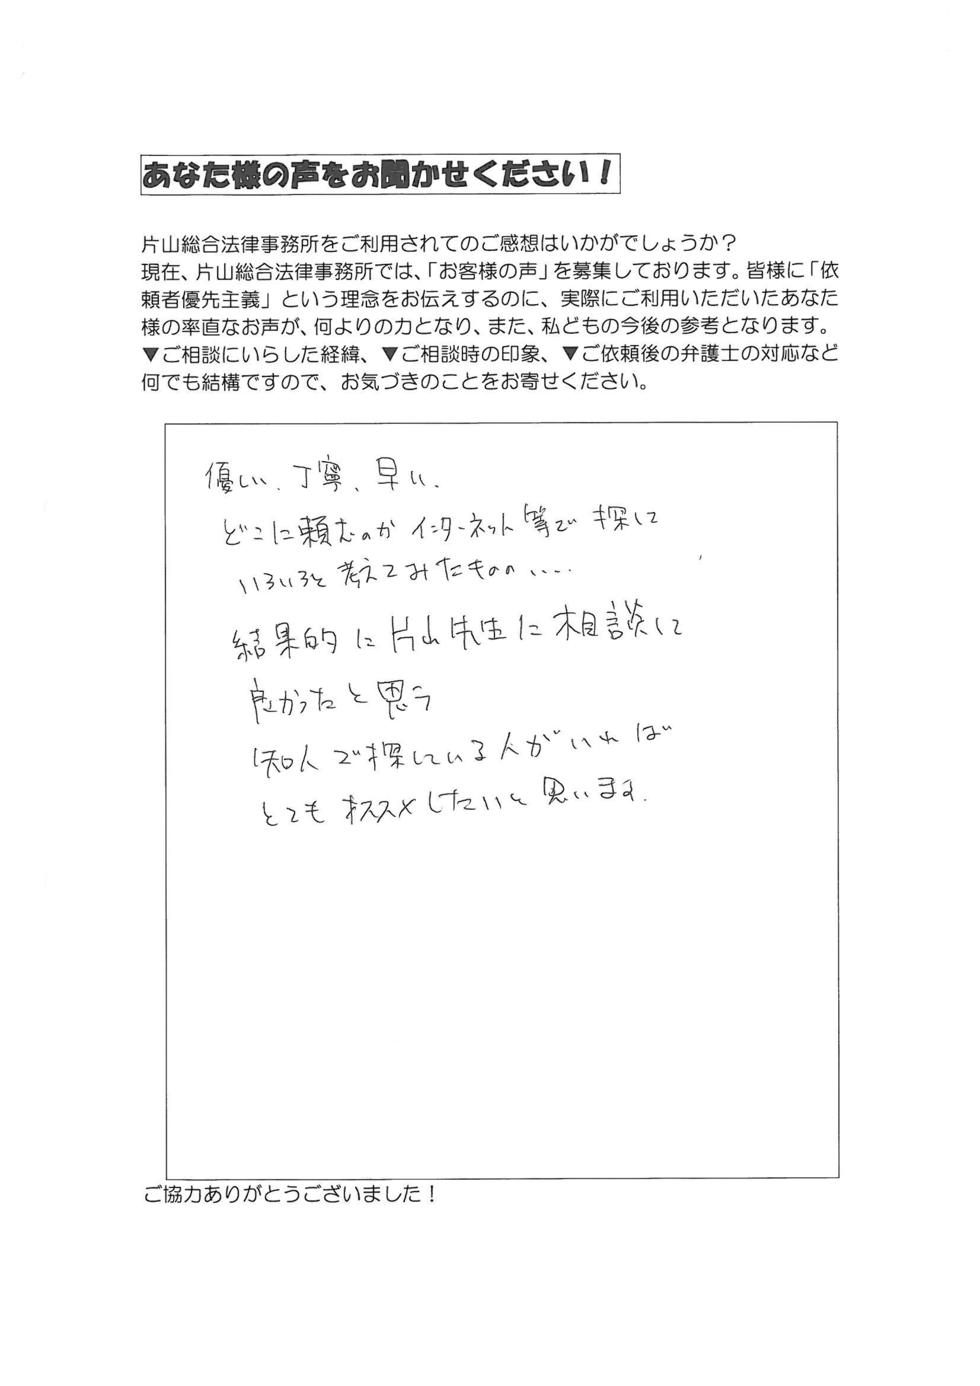 あなた様の声をお聞かせください！
片山総合法律事務所をご利用されてのご感想はいかがでしょうか？
現在、片山総合法律事務所では、「お客様の声」を募集しております。皆様に「依
頼者優先主義」という理念をお伝えするのに、実際にご利用いただいたあなた
様の率直なお声が、何よりの力となり、また、私どもの今後の参考となります。
▼ご相談にいらした経緯、▼ご相談時の印象、▼ご依頼後の弁護士の対応など
何でも結構ですので、お気づきのことをお寄せください。
優しい、丁寧、早い、
どこに頼むのか インターネット等で 探して
いろいろと考えてみたものの、、、、
結果的に片山先生に相談して
良かったと思う
知人で探している人がいれば
とてもオススメしたいと思います.
ご協力ありがとうございました！